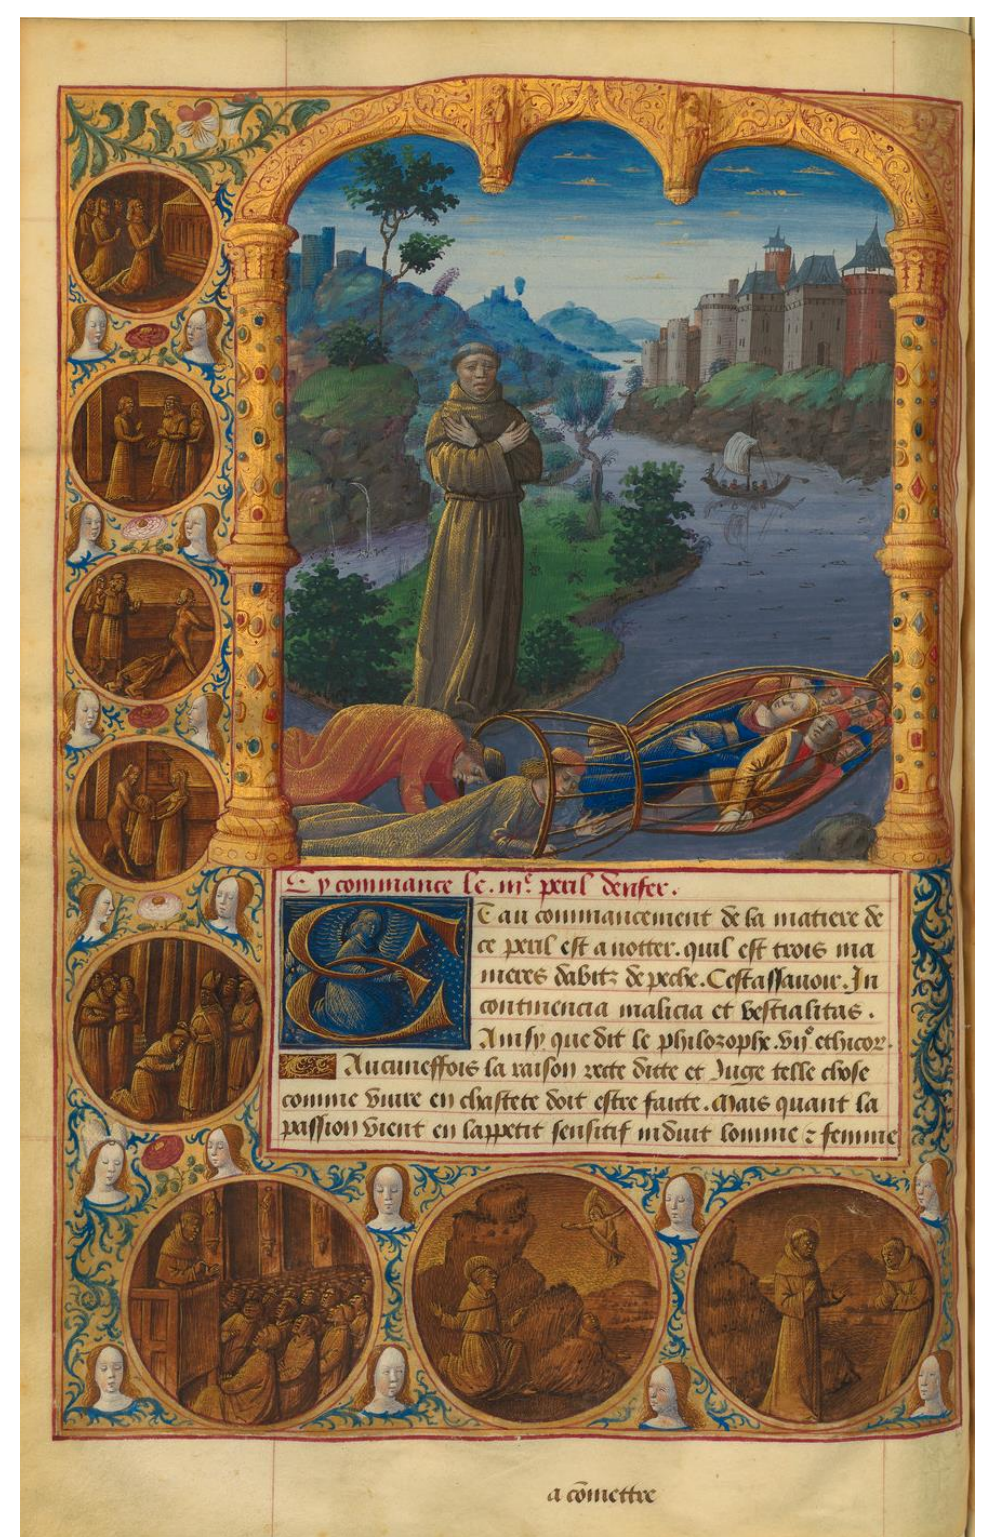 Cy commance le .iiie. peril denfer.
Et au commancement de la matiere de
ce peril est a notter. quil est trois ma
nieres dabitz de peche. Cestassauoir. In
continencia malicia et bestialitas.
Ainsy que dit le philozophe. viio ethicor.
Aucuneffois la raison recte dicte et Juge telle chose
comme viure en chastete doit estre faicte. Mais quant la
passion vient en lappetit sensitif induit lomme ⁊ femme
a cōmettre